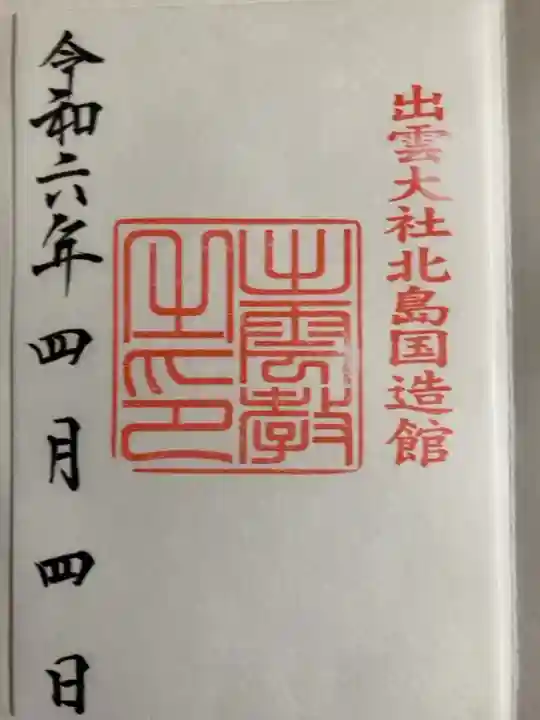 出雲大社北島国造館
出雲教
之印
令和六年四月四日